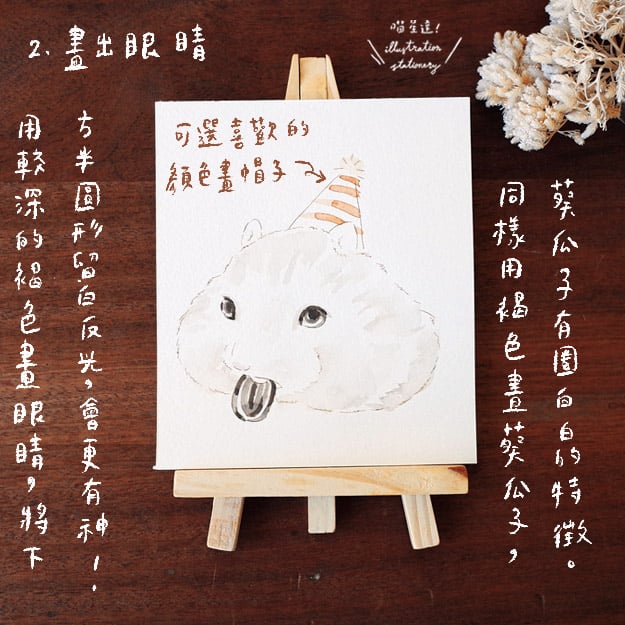 2. 畫出眼睛
喵星達!
illustration
stationery
可選喜歡的
顏色畫帽子
同樣用褐色畫葵瓜子,
葵瓜子有圈白白的特徵。
用較深的褐色畫眼睛,將下
方半圓形留白反光,會更有神!